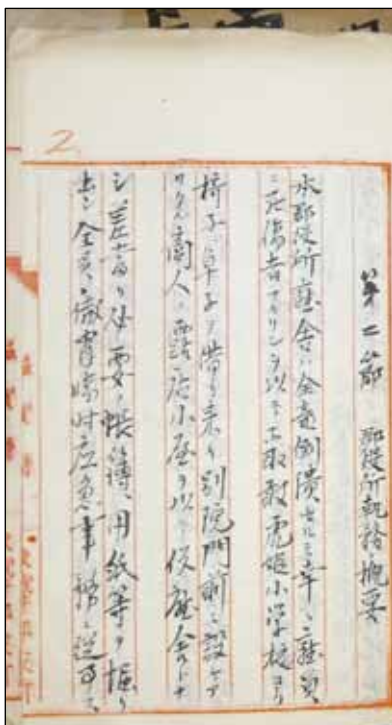 2
第二節 郡役所執務ノ概要
本郡役所庁舎ハ全部倒潰セルモ幸ニ職員
ニ死傷者ナカリシヲ以テ不取敢虎姫小学校ヨリ
椅子、卓子ヲ借リ来リ別院門前ニ設ケア
リタル商人ノ露店小屋ヲ以テ仮庁舎トナ
シ差当リ必要ノ帳簿、用紙等ヲ掘リ
出シ全員ハ徹宵臨時応急事務ニ従事ス